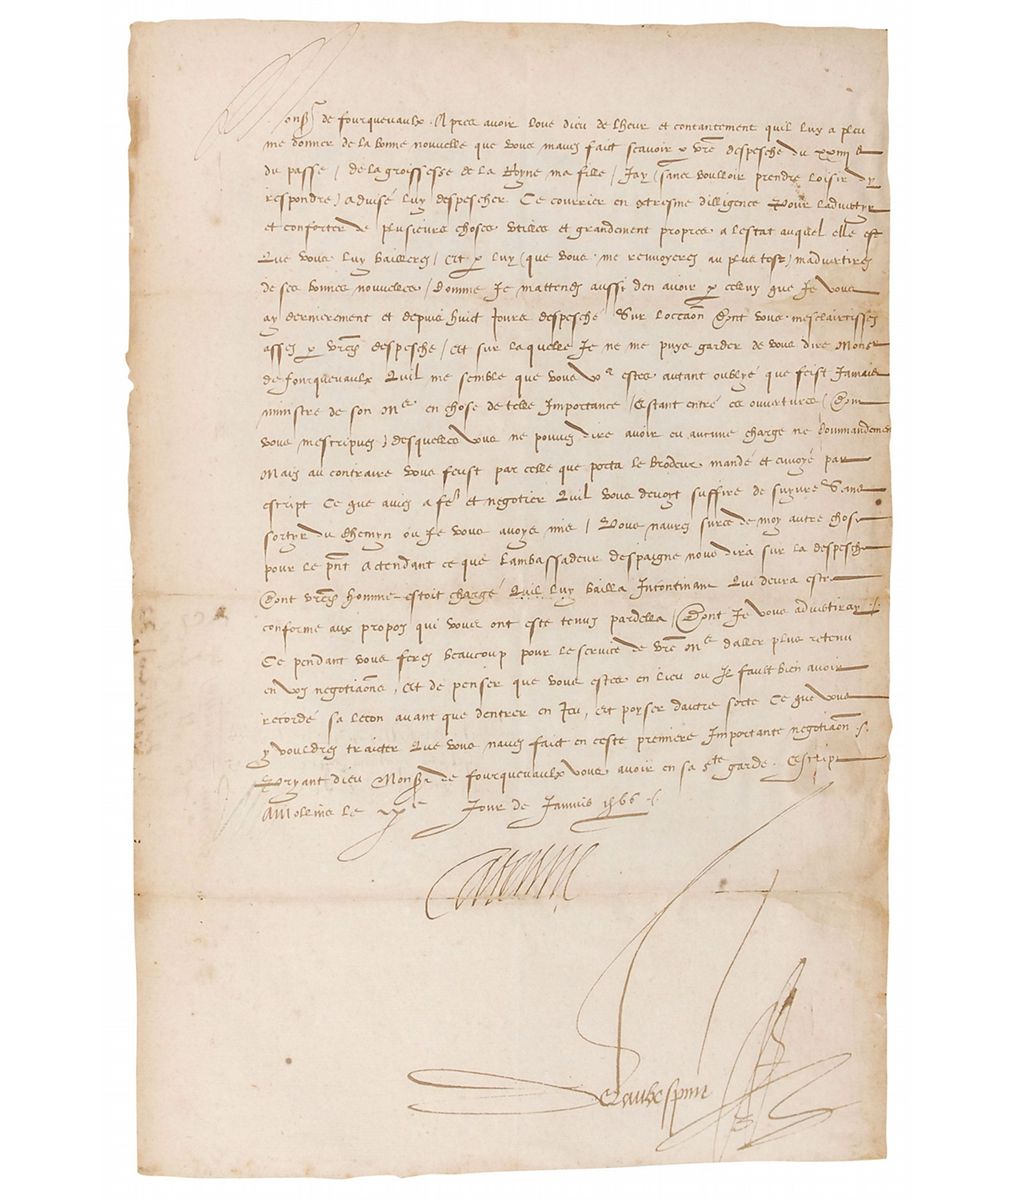 Monsr de fourquevaulx. Apres avoir loue dieu de lheur et contantement quil luy a pleu
me donner de la bonne nouvelle que vous mavez fait scavoir p vre despesche du xxiiiie
du passe, de la groissesse de la Royne ma fille, Jay (sans voulloir prendre loisir dy
respondre) advisé luy despescher ce courrier en extresme dilligence pour ladvertyr
et conforter de plusieurs choses utilles et grandement propres a lestat auquel elle est
Que vous luy baillerez, Et p luy (que vous me renvoyerez au plus tost) madvertirez
de ses bonnes nouvelles, Comme Je mattendz aussi den avoir p celuy que Je vous
ay dernierement et depuis huict Jours despesché Sur loccaon dont vous mesclaircissez
assez p vre despesche, Et sur laquelle Je ne me puys garder de vous dire Monsr
de fourquevaulx Quil me semble que vous vs estes autant oublyé que feist Jamais
ministre de son Me en chose de telle Importance, Estant entré es ouvertures (Dont
vous mescripvez) desquelles vous ne pouvez dire avoir eu aucune charge ne commandement
Mais au contraire vous feust par celle que porta le brodeur mandé et envoyé par
escript ce que aviez a fe et negotier Quil vous devoit suffire de suyvre Sans
sortyr du chemyn ou Je vous avoys mis, Vous naurez sur ce de moy autre chose
pour le pnt actendant ce que Lambassadeur despaigne nous dira sur la despesche
Dont vre homme estoit chargé Quil luy bailla Incontinant Qui devra estre
conforme aux propos qui vous ont esté tenus pardella, Dont Je vous advertiray
Ce pendant vous ferez beaucoup pour le service de vre Me daller plus retenu
en voz negotiaons, Et de penser que vous estes en lieu ou Il fault bien avoir
recordé sa lecon avant que dentrer en Jeu, Et poyser dautre sorte ce que vous
y vouldrez traicter Que vous navez faict en ceste premiere Importante negotiaon
Pryant dieu Monsr de fourquevaulx vous avoir en sa ste garde. Escript
A Molins le xxe Jour de Janvier 1566
Caterine
Delaubespine